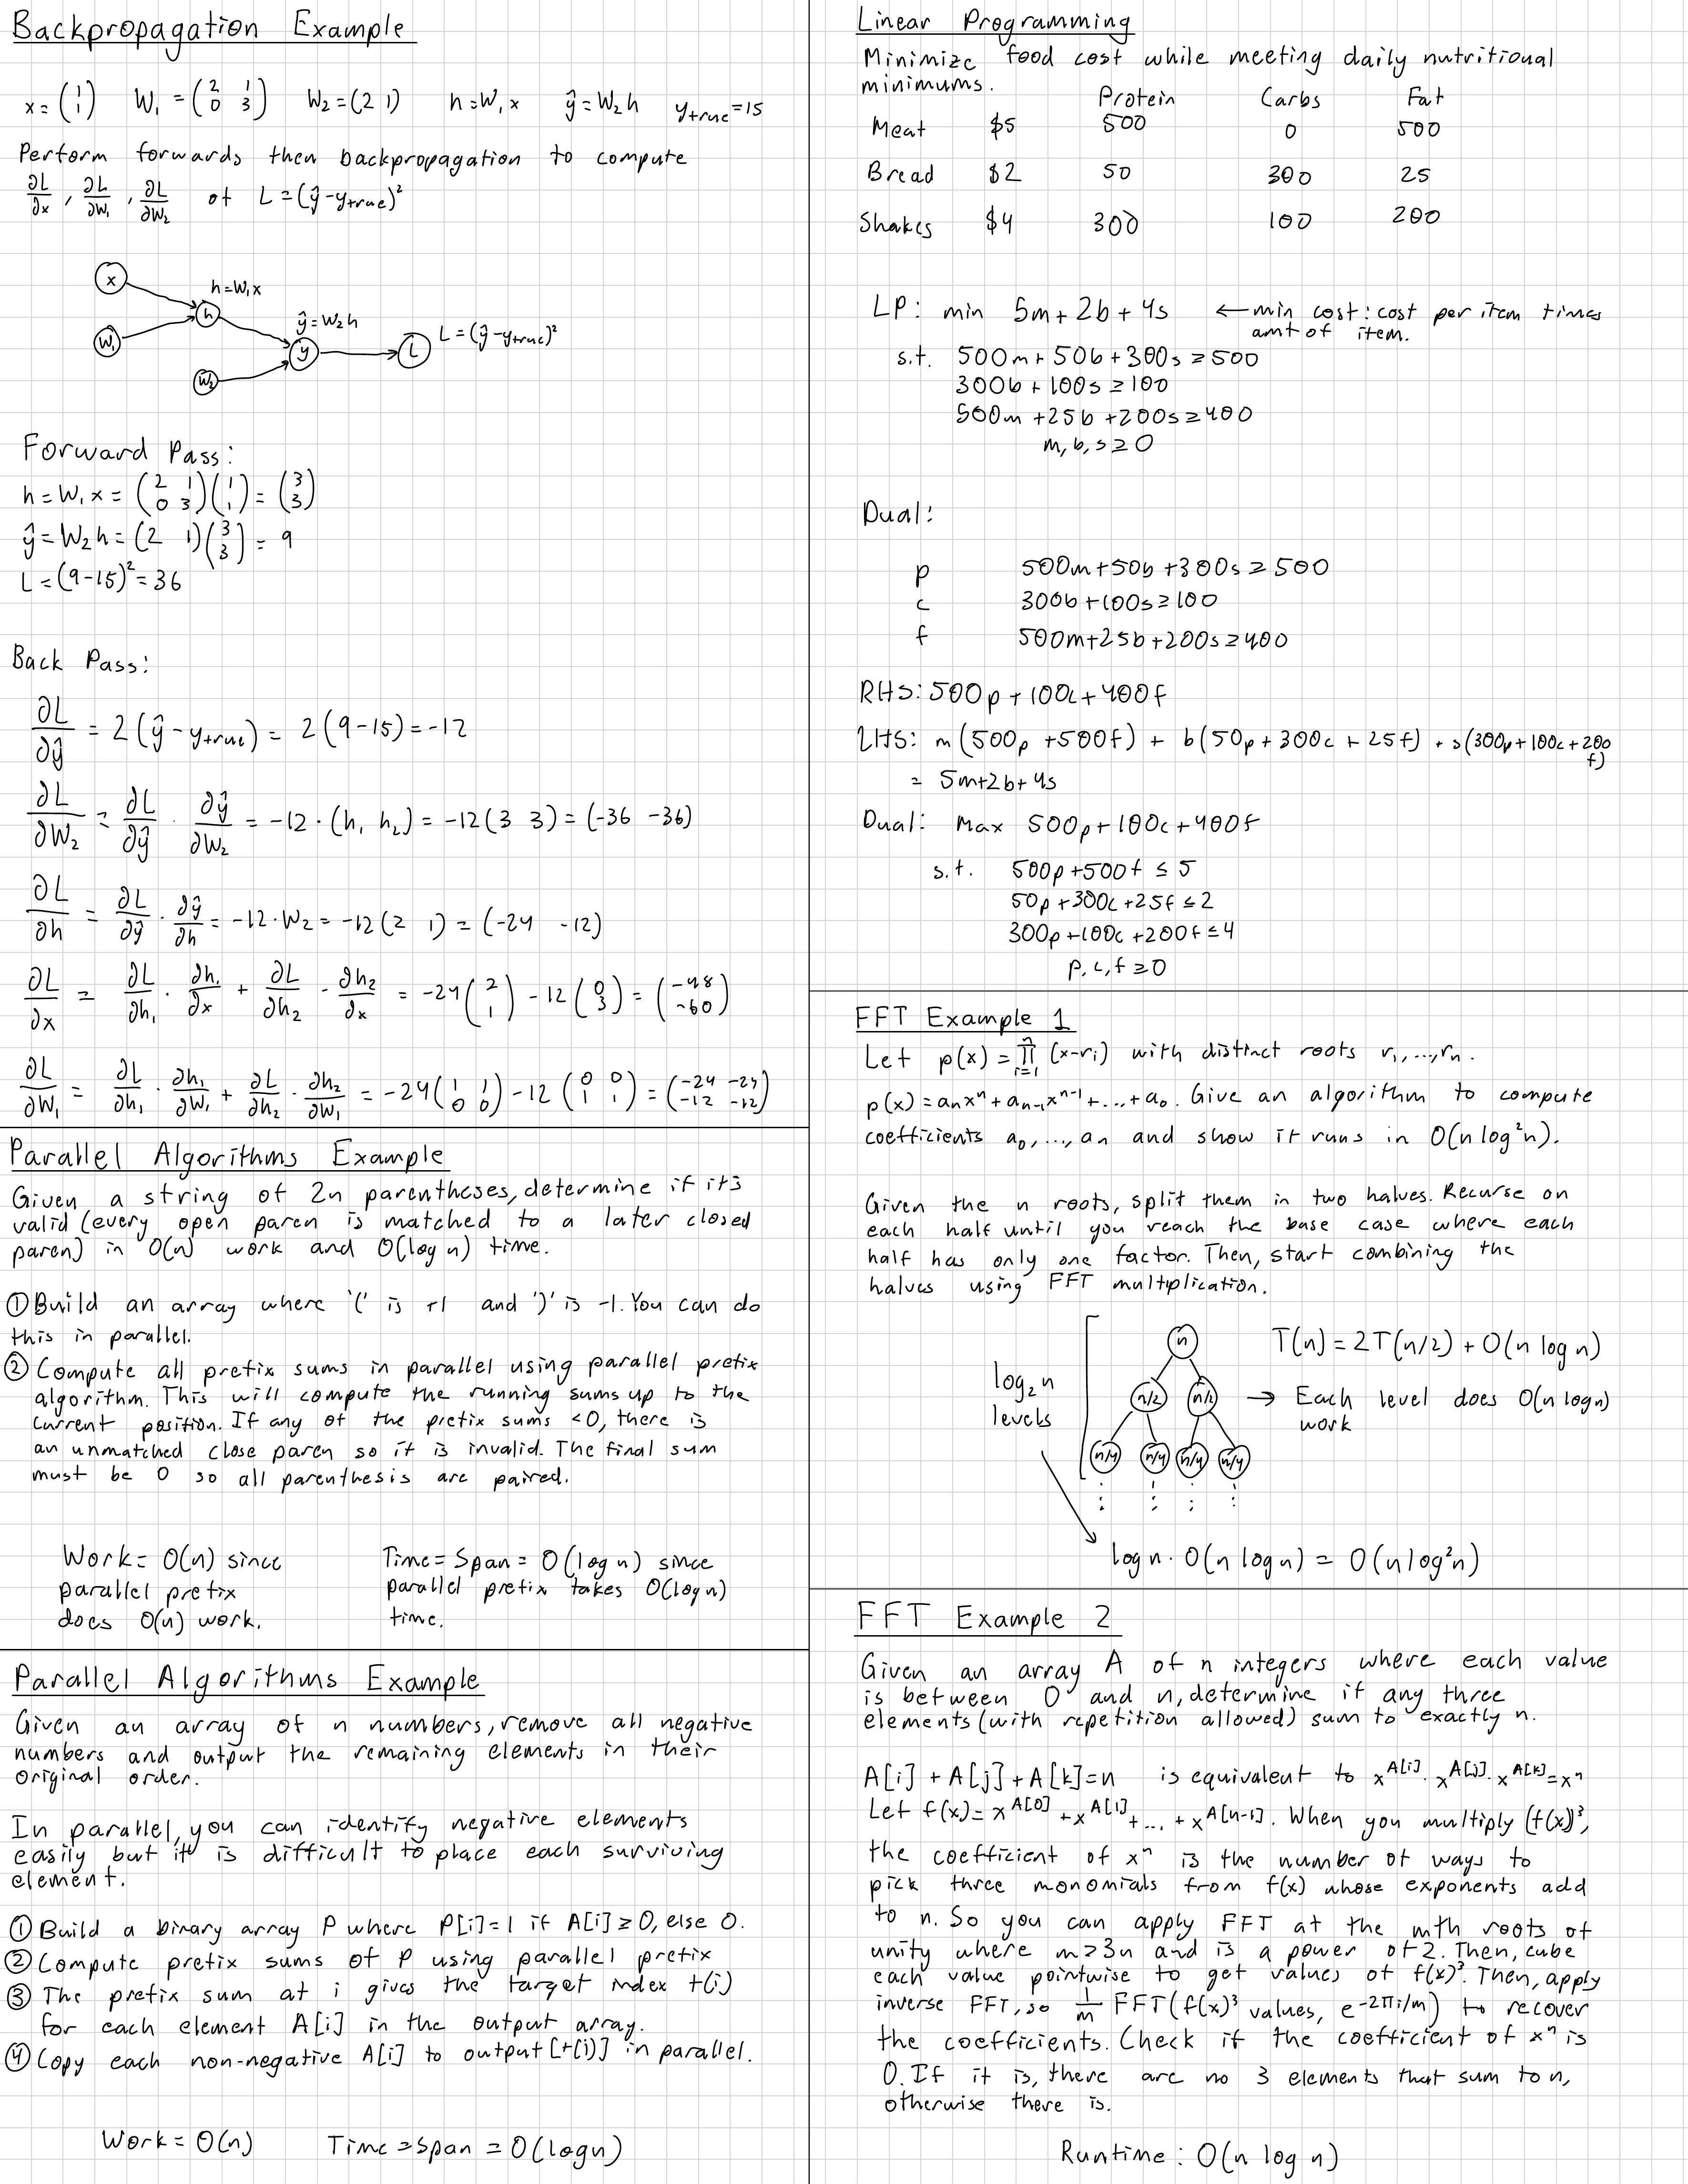 Backpropagation Example
x = (1 1) W₁ = (2 1 0 3) W₂ = (2 1) h = W₁x ŷ = W₂h y_true = 15
Perform forwards then backpropagation to compute
∂L/∂x, ∂L/∂W₁, ∂L/∂W₂ of L = (ŷ - y_true)²
x
h = W₁x
h
W₁
ŷ = W₂h
y
L = (ŷ - y_true)²
L
W₂
Forward Pass:
h = W₁x = (2 1 0 3)(1 1) = (3 3)
ŷ = W₂h = (2 1)(3 3) = 9
L = (9-15)² = 36
Back Pass:
∂L/∂ŷ = 2(ŷ - y_true) = 2(9-15) = -12
∂L/∂W₂ = ∂L/∂ŷ · ∂ŷ/∂W₂ = -12 · (h₁ h₂) = -12(3 3) = (-36 -36)
∂L/∂h = ∂L/∂ŷ · ∂ŷ/∂h = -12 · W₂ = -12(2 1) = (-24 -12)
∂L/∂x = ∂L/∂h₁ · ∂h₁/∂x + ∂L/∂h₂ · ∂h₂/∂x = -24(2 1) - 12(0 3) = (-48 -60)
∂L/∂W₁ = ∂L/∂h₁ · ∂h₁/∂W₁ + ∂L/∂h₂ · ∂h₂/∂W₁ = -24(1 1 0 0) - 12(0 0 1 1) = (-24 -24 -12 -12)
Parallel Algorithms Example
Given a string of 2n parentheses, determine if its
valid (every open paren is matched to a later closed
paren) in O(n) work and O(log n) time.
① Build an array where '(' is +1 and ')' is -1. You can do
this in parallel.
② Compute all prefix sums in parallel using parallel prefix
algorithm. This will compute the running sums up to the
current position. If any of the prefix sums <0, there is
an unmatched close paren so it is invalid. The final sum
must be 0 so all parenthesis are paired.
Work = O(n) since
parallel prefix
does O(n) work.
Time = Span = O(log n) since
parallel prefix takes O(log n)
time.
Parallel Algorithms Example
Given an array of n numbers, remove all negative
numbers and output the remaining elements in their
original order.
In parallel, you can identify negative elements
easily but it is difficult to place each surviving
element.
① Build a binary array P where P[i]=1 if A[i]≥0, else 0.
② Compute prefix sums of P using parallel prefix
③ The prefix sum at i gives the target index t(i)
for each element A[i] in the output array.
④ Copy each non-negative A[i] to output[t(i)] in parallel.
Work = O(n) Time = Span = O(log n)
Linear Programming
Minimize food cost while meeting daily nutritional
minimums.
Protein Carbs Fat
Meat $5 500 0 500
Bread $2 50 300 25
Shakes $4 300 100 200
LP: min 5m + 2b + 4s ← min cost: cost per item times
amt of item.
s.t. 500m + 50b + 300s ≥ 500
300b + 100s ≥ 100
500m + 25b + 200s ≥ 400
m, b, s ≥ 0
Dual:
p 500m + 50b + 300s ≥ 500
c 300b + 100s ≥ 100
f 500m + 25b + 200s ≥ 400
RHS: 500p + 100c + 400f
LHS: m(500p + 500f) + b(50p + 300c + 25f) + s(300p + 100c + 200
f)
= 5m + 2b + 4s
Dual: Max 500p + 100c + 400f
s.t. 500p + 500f ≤ 5
50p + 300c + 25f ≤ 2
300p + 100c + 200f ≤ 4
p, c, f ≥ 0
FFT Example 1
Let p(x) = ∏ᵢ₌₁ⁿ (x-rᵢ) with distinct roots r₁,...,rₙ.
p(x) = aₙxⁿ + aₙ₋₁xⁿ⁻¹ + ... + a₀. Give an algorithm to compute
coefficients a₀,...,aₙ and show it runs in O(n log²n).
Given the n roots, split them in two halves. Recurse on
each half until you reach the base case where each
half has only one factor. Then, start combining the
halves using FFT multiplication.
log₂n
levels
n
n/2 n/2
n/4 n/4 n/4 n/4
T(n) = 2T(n/2) + O(n log n)
→ Each level does O(n log n)
work
log n · O(n log n) = O(n log²n)
FFT Example 2
Given an array A of n integers where each value
is between 0 and n, determine if any three
elements (with repetition allowed) sum to exactly n.
A[i] + A[j] + A[k] = n is equivalent to x^A[i] · x^A[j] · x^A[k] = xⁿ
Let f(x) = x^A[0] + x^A[1] + ... + x^A[n-1]. When you multiply (f(x))³,
the coefficient of xⁿ is the number of ways to
pick three monomials from f(x) whose exponents add
to n. So you can apply FFT at the mth roots of
unity where m≥3n and is a power of 2. Then, cube
each value pointwise to get values of f(x)³. Then, apply
inverse FFT, so 1/m FFT(f(x)³ values, e^(-2πi/m)) to recover
the coefficients. Check if the coefficient of xⁿ is
0. If it is, there are no 3 elements that sum to n,
otherwise there is.
Runtime: O(n log n)